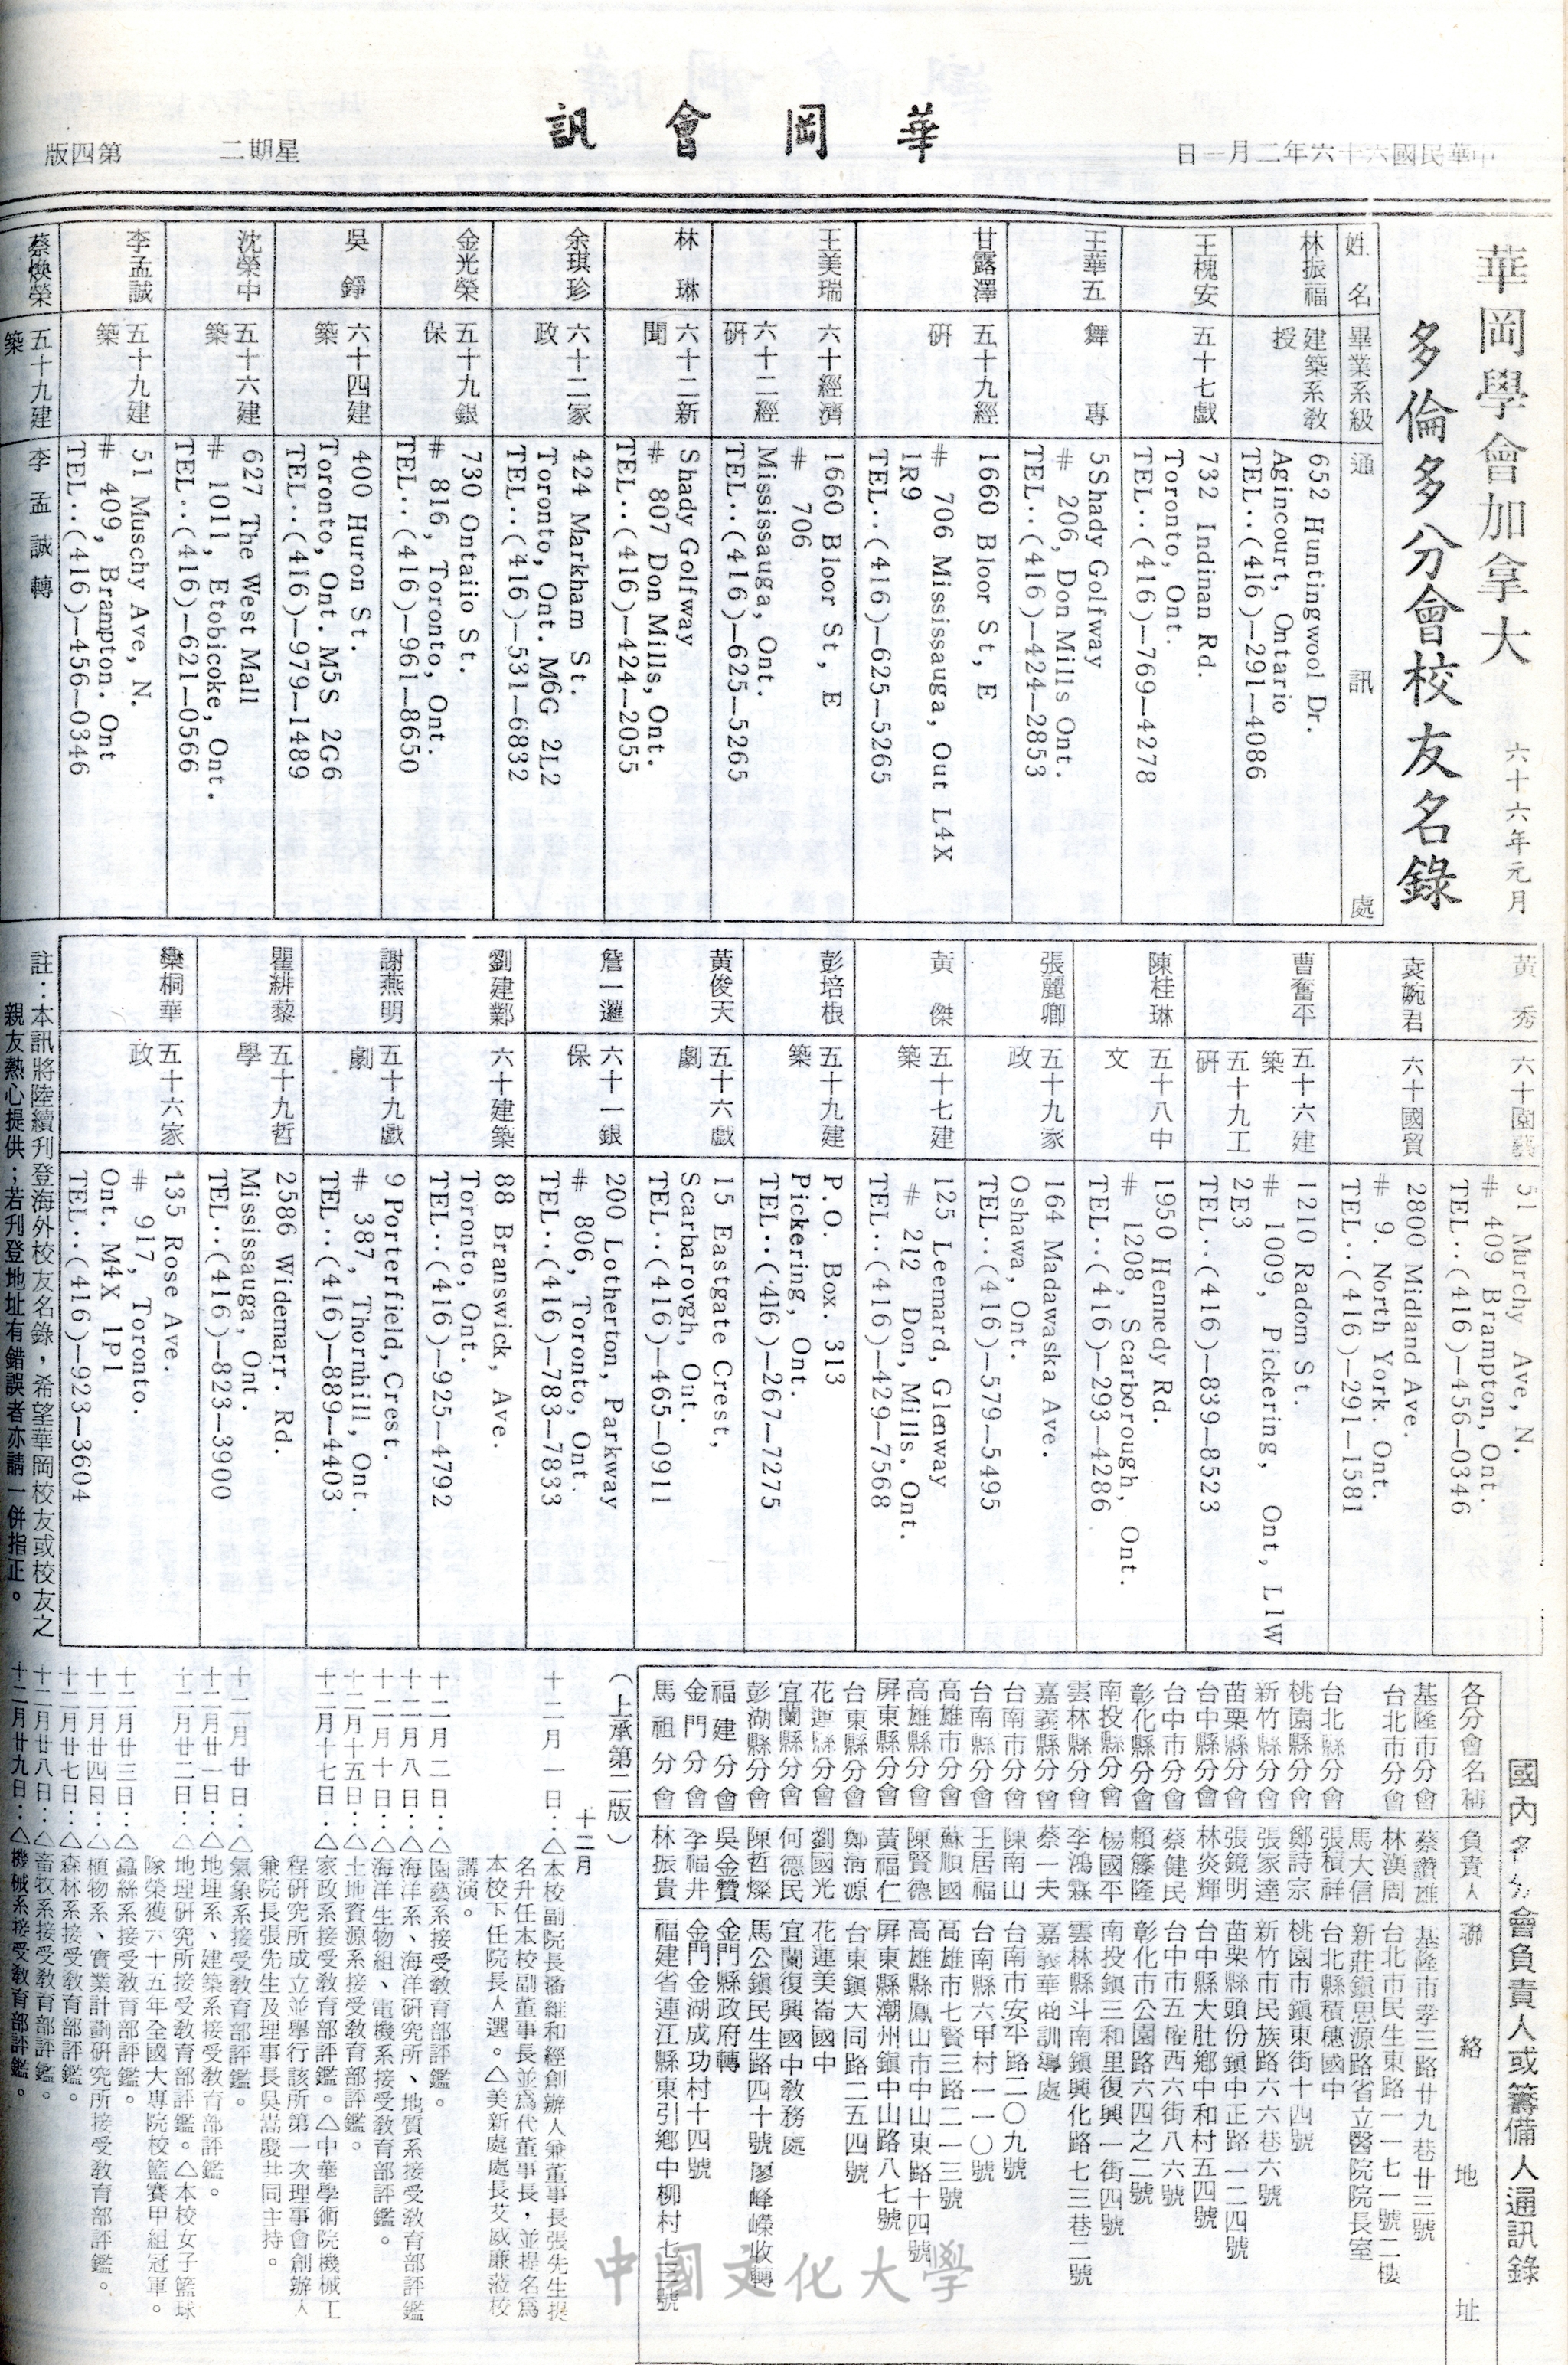 中華民國六十六年二月一日
華岡會訊
星期二
第四版
華岡學會加拿大
多倫多分會校友名錄
六十六年元月
姓名
畢業系級
通訊處
林振福
建築系教
授
652 Huntingwool Dr.
Agincourt, Ontario
TEL··(416)—291—4086
王槐安
五十七戲
732 Indinan Rd.
Toronto, Ont.
TEL··(416)—769—4278
王華五
舞專
5Shady Golfway
# 206, Don Mills Ont.
TEL··(416)—424—2853
甘露澤
五十九經
研
1660 Bloor St, E
# 706 Mississauga, Out L4X
1R9
TEL··(416)—625—5265
王美瑞
六十經濟
六十二經
研
1660 Bloor St, E
# 706
Mississauga, Ont.
TEL··(416)—625—5265
林琳
六十二新
聞
Shady Golfway
# 807 Don Mills, Ont.
TEL··(416)—424—2055
余琪珍
六十二家
政
424 Markham St.
Toronto, Ont. M6G 2L2
TEL··(416)—531—6832
金光榮
五十九銀
保
730 Ontaiio St.
# 816, Toronto, Ont.
TEL··(416)—961—8650
吳錚
六十四建
築
400 Huron St.
Toronto, Ont. M5S 2G6
TEL··(416)—979—1489
沈榮中
五十六建
築
627 The West Mall
# 1011, Etobicoke, Ont.
TEL··(416)—621—0566
李孟誠
五十九建
築
51 Muschy Ave, N.
# 409, Brampton. Ont
TEL··(416)—456—0346
蔡煥榮
五十九建
築
李孟誠轉
黃秀
六十園藝
51 Murchy Ave, N.
# 409 Brampton, Ont.
TEL··(416)—456—0346
袁婉君
六十國貿
2800 Midland Ave.
# 9. North York. Ont.
TEL··(416)—291—1581
曹奮平
五十六建
築
五十九工
研
1210 Radom St.
# 1009, Pickering, Ont, L1W
2E3
TEL··(416)—839—8523
陳桂琳
五十八中
文
1950 Hennedy Rd.
# 1208, Scarborough, Ont.
TEL··(416)—293—4286
張麗卿
五十九家
政
164 Madawaska Ave.
Oshawa, Ont.
TEL··(416)—579—5495
黃傑
五十七建
築
125 Leemard, Glenway
# 212 Don, Mills, Ont.
TEL··(416)—429—7568
彭培根
五十九建
築
P.O. Box. 313
Pickering, Ont.
TEL··(416)—267—7275
黃俊天
五十六戲
劇
15 Eastgate Crest,
Scarbarovgh, Ont.
TEL··(416)—465—0911
詹一邏
六十一銀
保
200 Lotherton, Parkway
# 806, Toronto, Ont.
TEL··(416)—783—7833
劉建鄴
六十建築
88 Branswick, Ave.
Toronto, Ont.
TEL··(416)—925—4792
謝燕明
五十九戲
劇
9 Porterfield, Crest.
# 387, Thornhill, Ont.
TEL··(416)—889—4403
瞿緋藜
五十九哲
學
2586 Widemarr. Rd.
Mississauga, Ont.
TEL··(416)—823—3900
欒桐華
五十六家
政
135 Rose Ave.
# 917, Toronto.
Ont. M4X 1P1
TEL··(416)—923—3604
註：本訊將陸續刊登海外校友名錄，希望華岡校友或校友之
親友熱心提供；若刊登地址有錯誤者亦請一併指正。
國內各分會負責人或籌備人通訊錄
各分會名稱 負責人 聯絡地址
基隆市分會 蔡讚雄 基隆市孝三路廿九巷廿三號
台北市分會 林漢周 台北市民生東路一一七一號二樓
馬大信 新莊鎮思源路省立醫院院長室
台北縣分會 張積祥 台北縣積穗國中
桃園縣分會 鄭詩宗 桃園市鎮東街十四號
新竹縣分會 張家達 新竹市民族路六六巷六號
苗栗縣分會 張鏡明 苗栗縣頭份鎮中正路一二四號
台中縣分會 林炎輝 台中縣大肚鄉中和村五四號
台中市分會 蔡健民 台中市五權西六街八六號
彰化縣分會 賴籐隆 彰化市公園路六四之二號
南投縣分會 楊國平 南投鎮三和里復興一街四號
雲林縣分會 李鴻霖 雲林縣斗南鎮興化路七三巷二號
嘉義縣分會 蔡一夫 嘉義華商訓導處
台南市分會 陳南山 台南市安平路二〇九號
台南縣分會 王居福 台南縣六甲村一一〇號
高雄市分會 蘇順國 高雄市七賢三路二一三號
高雄縣分會 陳賢德 高雄縣鳳山市中山東路十四號
屏東縣分會 黃福仁 屏東縣潮州鎮中山路八七號
台東縣分會 鄭清源 台東鎮大同路二五四號
花蓮縣分會 劉國光 花蓮美崙國中
宜蘭縣分會 何德民 宜蘭復興國中教務處
彭湖縣分會 陳哲燦 馬公鎮民生路四十號廖峰嶸收轉
福建分會 吳金贊 金門縣政府轉
金門分會 李福井 金門金湖成功村十四號
馬祖分會 林振貴 福建省連江縣東引鄉中柳村七三號
（上承第二版）
十二月
十二月一日：△本校副院長潘維和經創辦人兼董事長張先生提
名升任本校副董事長並為代董事長，並提名為
本校下任院長人選。△美新處處長艾威廉蒞校
講演。
十二月二日：△園藝系接受教育部評鑑。
十二月八日：△海洋系、海洋研究所、地質系接受教育部評鑑
十二月十日：△海洋生物組、電機系接受教育部評鑑。
十二月十五日：△土地資源系接受教育部評鑑。
十二月十七日：△家政系接受教育部評鑑。△中華學術院機械工
程研究所成立並舉行該所第一次理事會創辦人
兼院長張先生及理事長吳嵩慶共同主持。
十二月廿日：△氣象系接受教育部評鑑。
十二月廿一日：△地理系、建築系接受教育部評鑑。
十二月廿二日：△地理研究所接受教育部評鑑。△本校女子籃球
隊榮獲六十五年全國大專院校籃賽甲組冠軍。
十二月廿三日：△蠶絲系接受教育部評鑑。
十二月廿四日：△植物系、實業計劃研究所接受教育部評鑑。
十二月廿七日：△森林系接受教育部評鑑。
十二月廿八日：△畜牧系接受教育部評鑑。
十二月廿九日：△機械系接受教育部評鑑。
中國文化大學